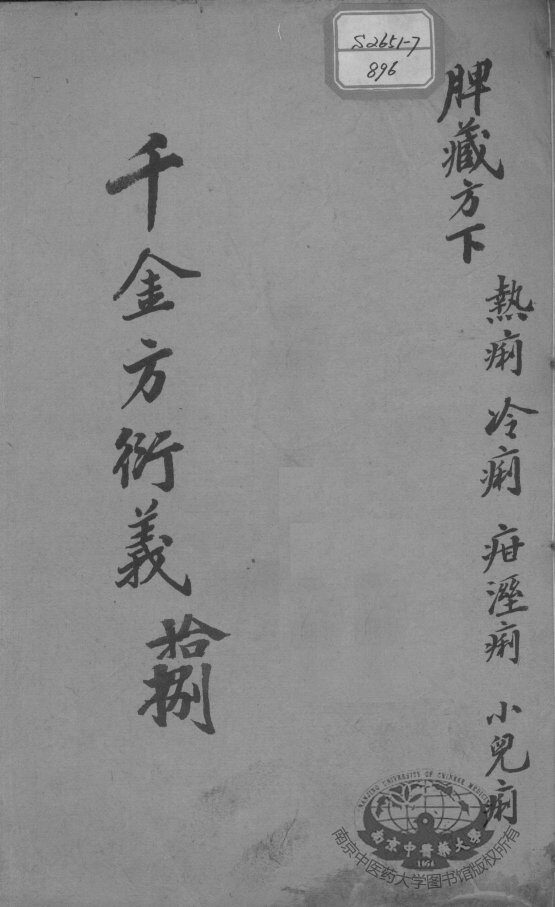 S2651-7
896
脾藏方下
熱痢 冷痢 疳溼痢 小兒痢
千金方衍義 拾捌
NANJING UNIVERSITY OF CHINESE MEDICINE
南京中醫藥大學
1954
南京中医药大学图书馆版权所有